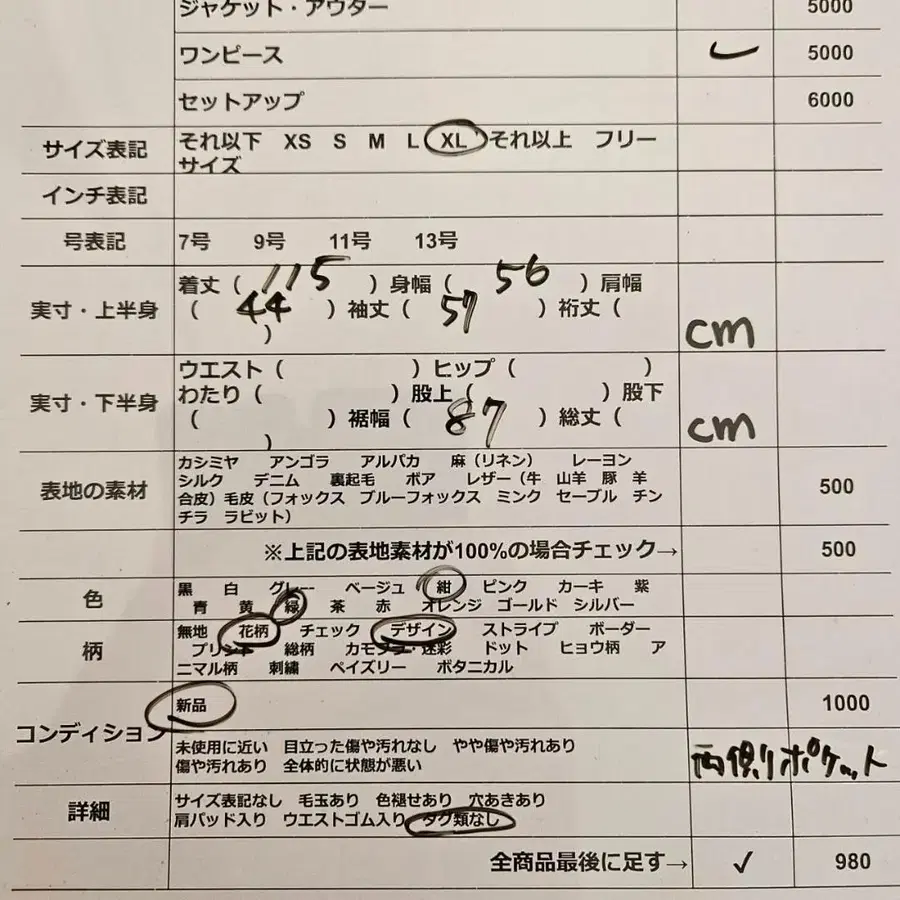 ジャケット・アウター 5000
ワンピース ✓ 5000
セットアップ 6000
サイズ表記 それ以下 XS S M L XL それ以上 フリー
サイズ
インチ表記
号表記 7号 9号 11号 13号
実寸・上半身 着丈（ 115 ）身幅（ 56 ）肩幅
（ 44 ）袖丈（ 57 ）裄丈（
） cm
実寸・下半身 ウエスト（ ）ヒップ（ ）
わたり（ ）股上（ ）股下
（ ）裾幅（ 87 ）総丈（
） cm
表地の素材 カシミヤ アンゴラ アルパカ 麻（リネン） レーヨン
シルク デニム 裏起毛 ボア レザー（牛 山羊 豚 羊
合皮）毛皮（フォックス ブルーフォックス ミンク セーブル チン
チラ ラビット） 500
※上記の表地素材が100%の場合チェック→ 500
色 黒 白 グレー ベージュ 紺 ピンク カーキ 紫
青 黄 緑 茶 赤 オレンジ ゴールド シルバー
柄 無地 花柄 チェック デザイン ストライプ ボーダー
プリント 総柄 カモフラ・迷彩 ドット ヒョウ柄 ア
ニマル柄 刺繍 ペイズリー ボタニカル
コンディション 新品 1000
未使用に近い 目立った傷や汚れなし やや傷や汚れあり
傷や汚れあり 全体的に状態が悪い 両側りポケット
詳細 サイズ表記なし 毛玉あり 色褪せあり 穴あきあり
肩パッド入り ウエストゴム入り タグ類なし
全商品最後に足す→ ✓ 980